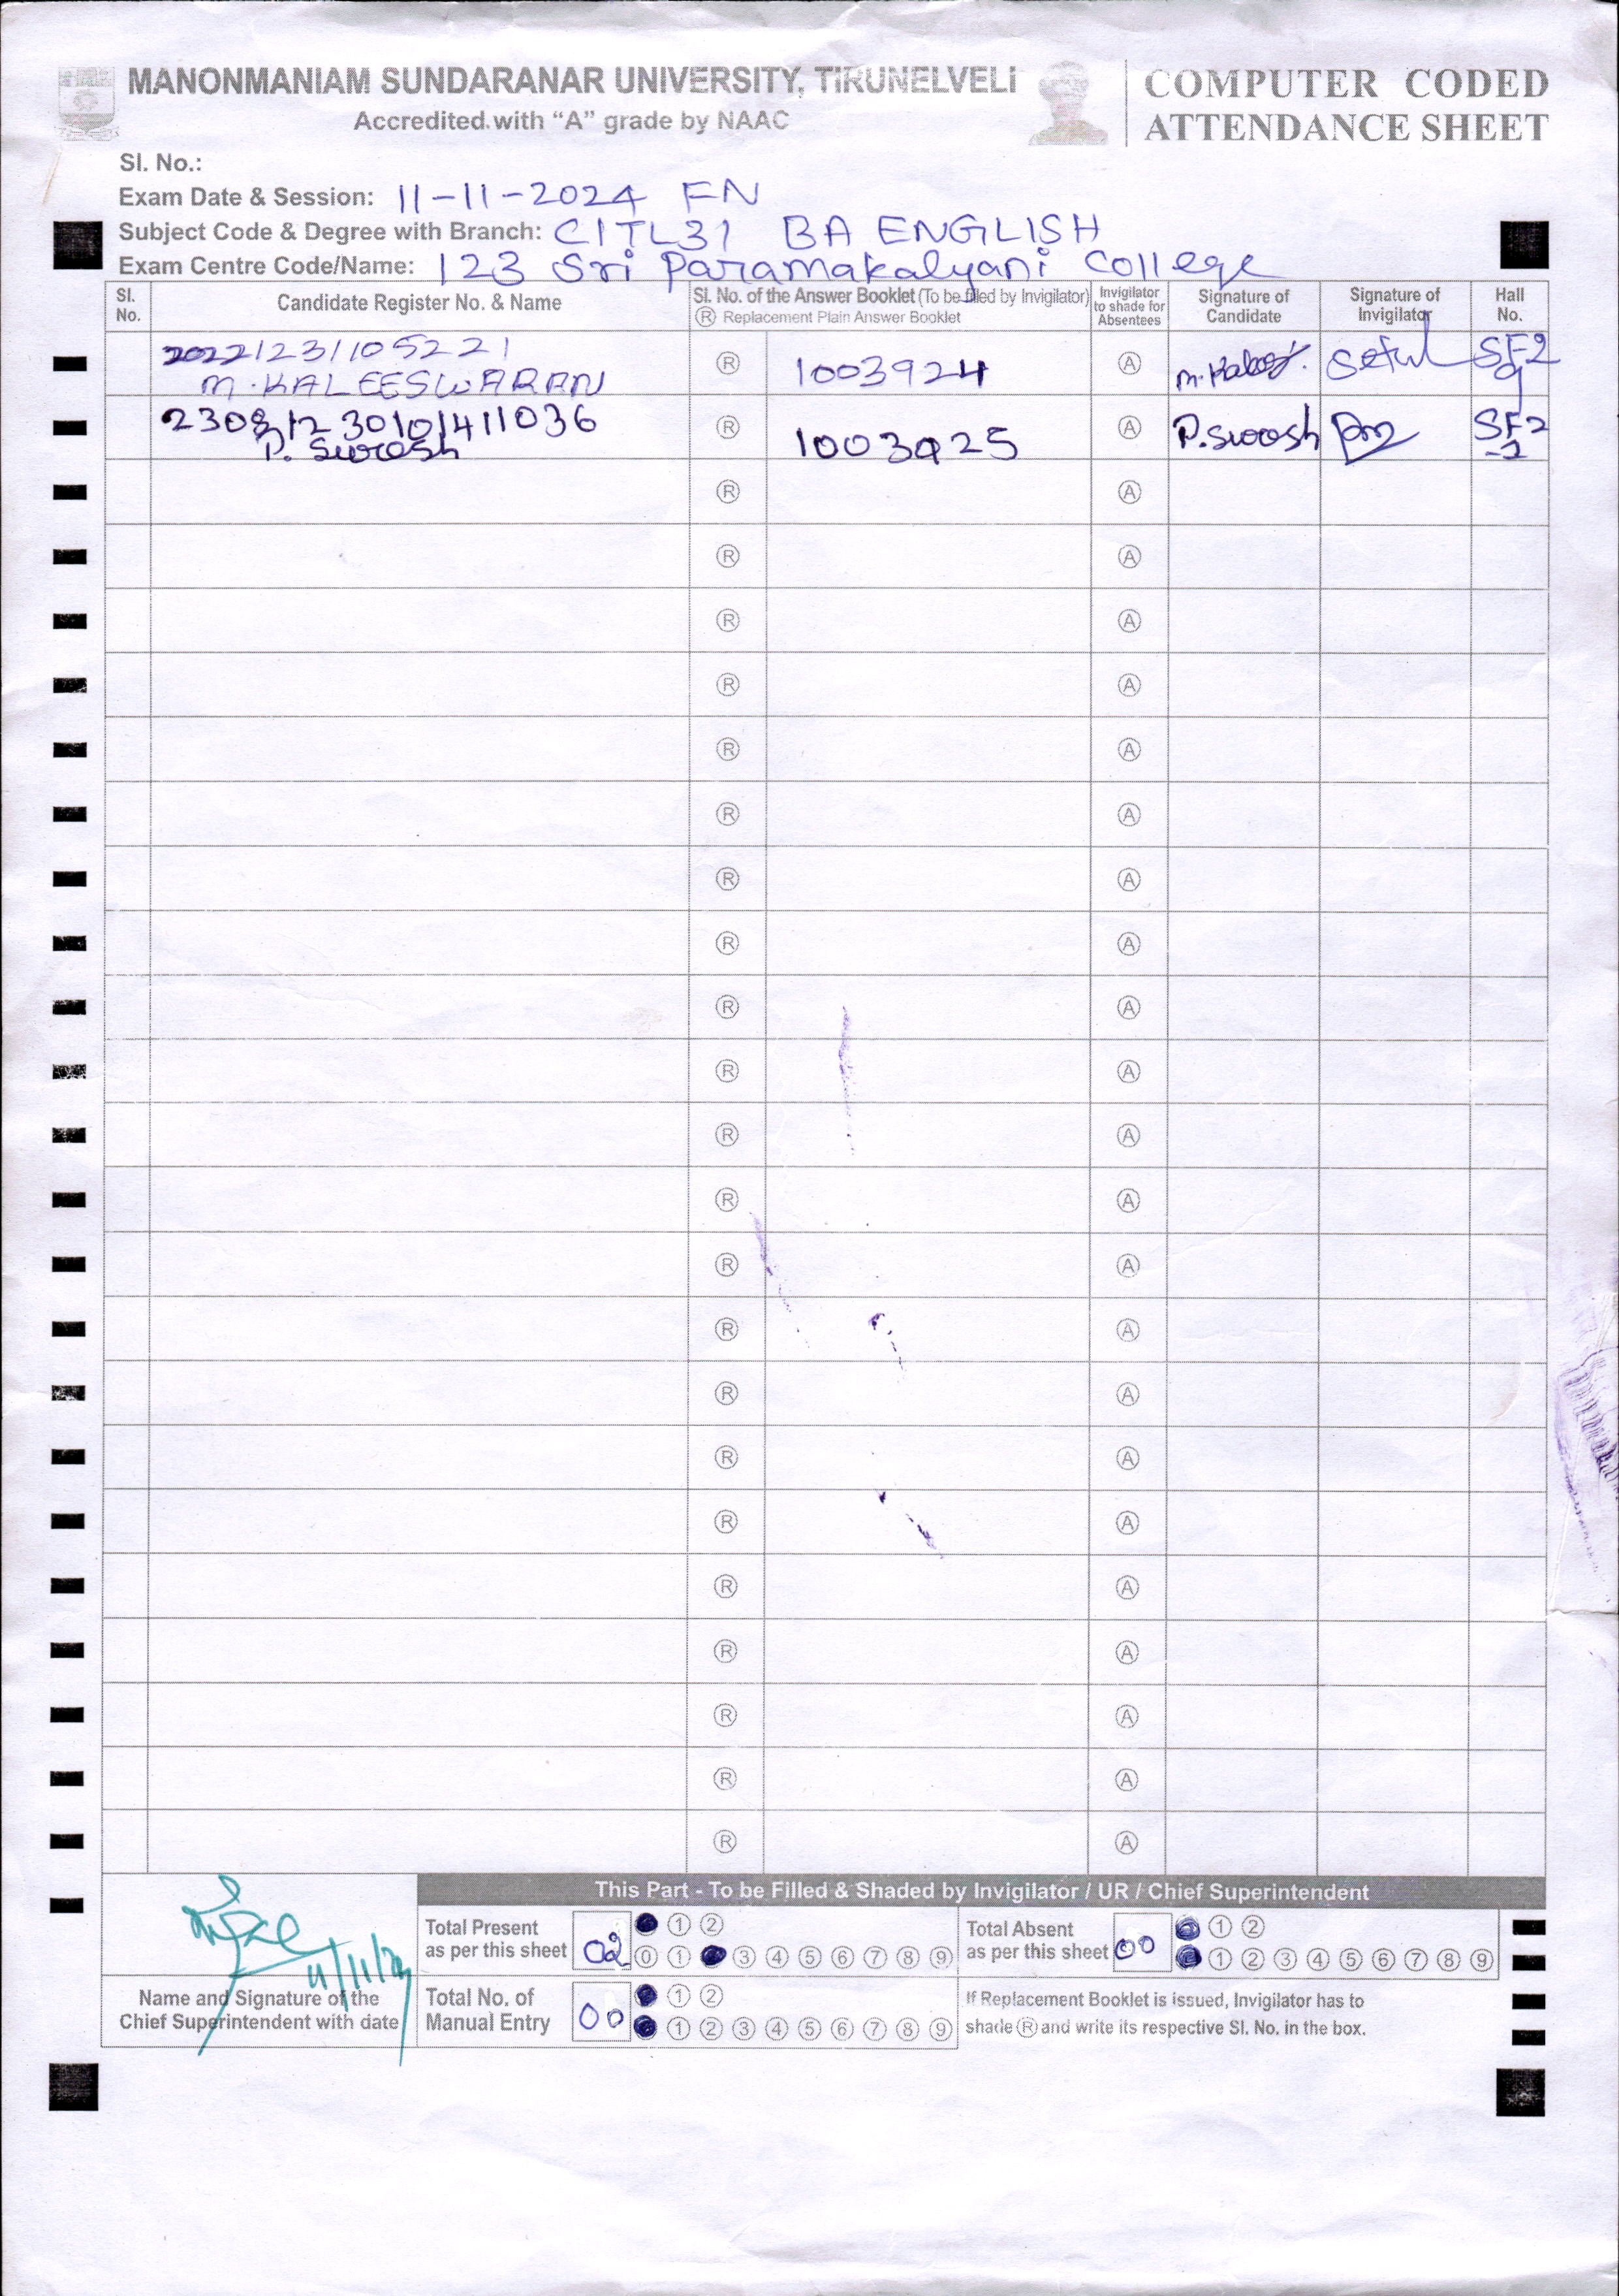 MANONMANIAM SUNDARANAR UNIVERSITY, TIRUNELVELI
Accredited with “A” grade by NAAC
COMPUTER CODED
ATTENDANCE SHEET
Sl. No.:
Exam Date & Session: 11-11-2024 FN
Subject Code & Degree with Branch: C1TL31 BA ENGLISH
Exam Centre Code/Name: 123 Sri Paramakalyani College
Sl. No. Candidate Register No. & Name Sl. No. of the Answer Booklet (To be filled by Invigilator) Ⓡ Replacement Plain Answer Booklet Invigilator to shade for Absentees Signature of Candidate Signature of Invigilator Hall No.
20221231105221 Ⓡ 1003924 Ⓐ SF2
M.KALEESWARAN
23081230101411036 Ⓡ 1003925 Ⓐ P.Suresh SF2
P. Suresh
Ⓡ Ⓐ
Ⓡ Ⓐ
Ⓡ Ⓐ
Ⓡ Ⓐ
Ⓡ Ⓐ
Ⓡ Ⓐ
Ⓡ Ⓐ
Ⓡ Ⓐ
Ⓡ Ⓐ
Ⓡ Ⓐ
Ⓡ Ⓐ
Ⓡ Ⓐ
Ⓡ Ⓐ
Ⓡ Ⓐ
Ⓡ Ⓐ
Ⓡ Ⓐ
Ⓡ Ⓐ
Ⓡ Ⓐ
Ⓡ Ⓐ
Ⓡ Ⓐ
Ⓡ Ⓐ
Ⓡ Ⓐ
This Part - To be Filled & Shaded by Invigilator / UR / Chief Superintendent
Total Present as per this sheet 02
① ②
⓪ ① ③ ④ ⑤ ⑥ ⑦ ⑧ ⑨
Total Absent as per this sheet 00
① ②
① ② ③ ④ ⑤ ⑥ ⑦ ⑧ ⑨
Name and Signature of the
Chief Superintendent with date
Total No. of Manual Entry 00
① ②
① ② ③ ④ ⑤ ⑥ ⑦ ⑧ ⑨
If Replacement Booklet is issued, Invigilator has to
shade Ⓡ and write its respective Sl. No. in the box.